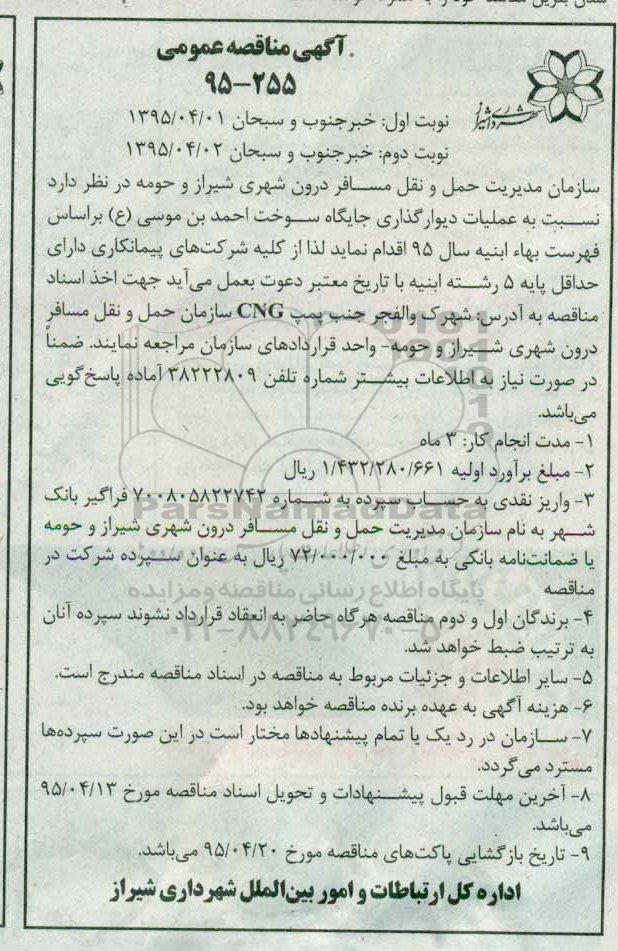 آگهی مناقصه عمومی
۹۵-۲۵۵
شهرداری شیراز
نوبت اول: خبرجنوب و سبحان ۱۳۹۵/۰۴/۰۱
نوبت دوم: خبرجنوب و سبحان ۱۳۹۵/۰۴/۰۲
سازمان مدیریت حمل و نقل مسافر درون شهری شیراز و حومه در نظر دارد
نسبت به عملیات دیوارگذاری جایگاه سوخت احمد بن موسی (ع) براساس
فهرست بهاء ابنیه سال ۹۵ اقدام نماید لذا از کلیه شرکت‌های پیمانکاری دارای
حداقل پایه ۵ رشته ابنیه با تاریخ معتبر دعوت بعمل می‌آید جهت اخذ اسناد
مناقصه به آدرس: شهرک والفجر جنب پمپ CNG سازمان حمل و نقل مسافر
درون شهری شیراز و حومه- واحد قراردادهای سازمان مراجعه نمایند. ضمناً
در صورت نیاز به اطلاعات بیشتر شماره تلفن ۳۸۲۲۲۸۰۹ آماده پاسخ‌گویی
می‌باشد.
۱- مدت انجام کار: ۳ ماه
۲- مبلغ برآورد اولیه ۱/۴۳۲/۲۸۰/۶۶۱ ریال
۳- واریز نقدی به حساب سپرده به شماره ۷۰۰۸۰۵۸۲۲۷۴۲ فراگیر بانک
ParsNamadData
شهر به نام سازمان مدیریت حمل و نقل مسافر درون شهری شیراز و حومه
یا ضمانت‌نامه بانکی به مبلغ ۷۲/۰۰۰/۰۰۰ ریال به عنوان سپرده شرکت در
مناقصه
پایگاه اطلاع رسانی مناقصه و مزایده
۴- برندگان اول و دوم مناقصه هرگاه حاضر به انعقاد قرارداد نشوند سپرده آنان
۰۲۱-۸۸۳۴۹۶۷۰-۵
به ترتیب ضبط خواهد شد.
۵- سایر اطلاعات و جزئیات مربوط به مناقصه در اسناد مناقصه مندرج است.
۶- هزینه آگهی به عهده برنده مناقصه خواهد بود.
۷- سازمان در رد یک یا تمام پیشنهادها مختار است در این صورت سپرده‌ها
مسترد می‌گردد.
۸- آخرین مهلت قبول پیشنهادات و تحویل اسناد مناقصه مورخ ۹۵/۰۴/۱۳
می‌باشد.
۹- تاریخ بازگشایی پاکت‌های مناقصه مورخ ۹۵/۰۴/۲۰ می‌باشد.
اداره کل ارتباطات و امور بین‌الملل شهرداری شیراز